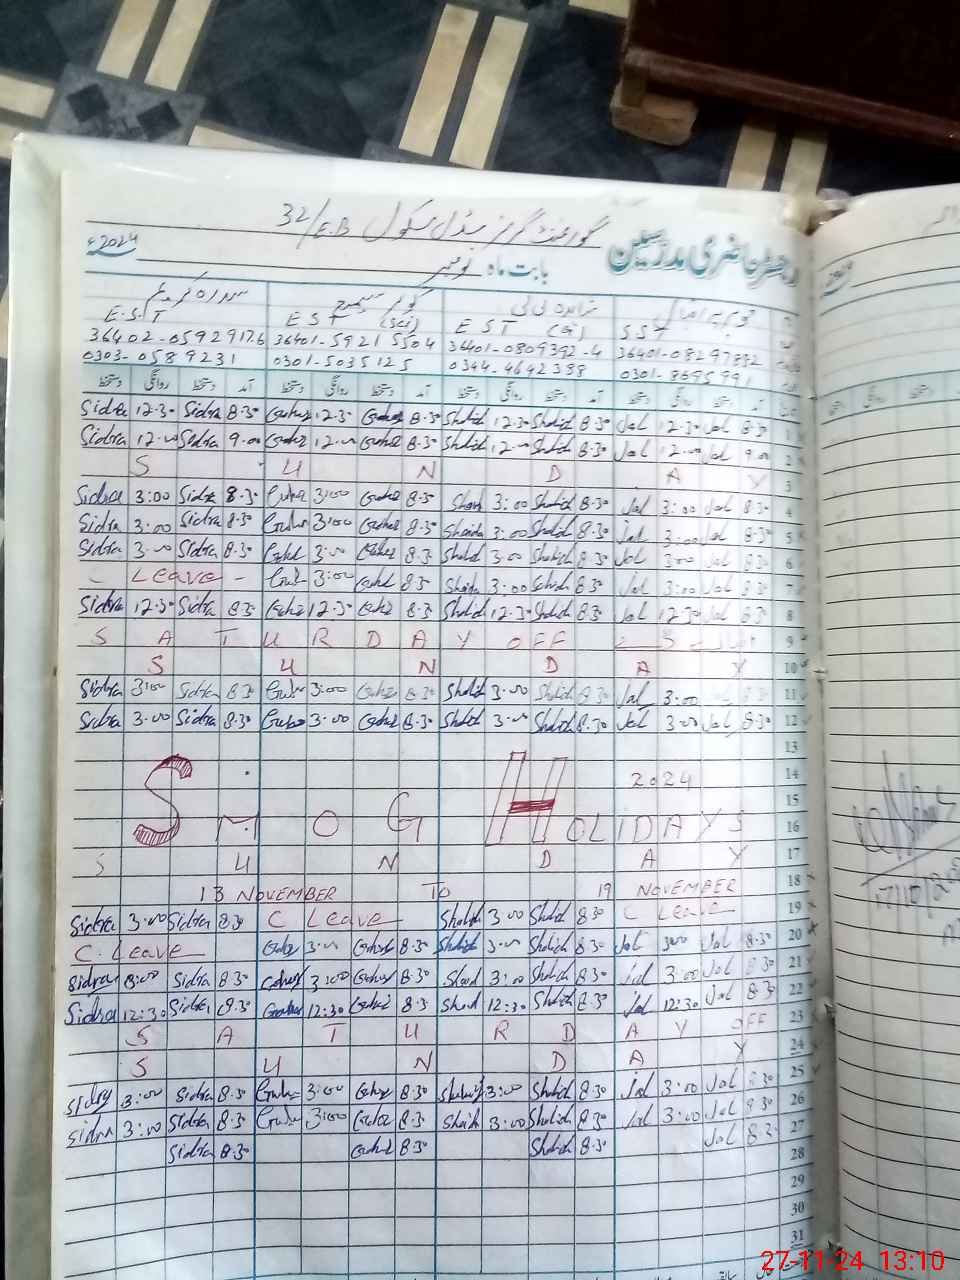 گورنمنٹ گرلز مڈل سکول 32/E.B
رجسٹر حاضری مدرسین
بابت ماہ نومبر 2024ء
E.S.T E S T (Sci) E S T (G) S S T
36402-0592917-6 36401-5921550 4 36401-0809392-4 36401-08297892
0303-0589231 0301-5035125 0344-4642388 0301-8695991
دستخط روانگی دستخط آمد دستخط روانگی دستخط آمد دستخط روانگی دستخط آمد دستخط روانگی دستخط آمد
Sidra 12.30 Sidra 8.30 Gohar 12.30 Gohar 8.30 Shahid 12.30 Shahid 8.30 Jal 12.30 Jal 8.30 1
Sidra 12.00 Sidra 9.00 Gohar 12.00 Gohar 8.30 Shahid 12.00 Shahid 8.30 Jal 12.00 Jal 9.00 2
S U N D A Y 3
Sidra 3:00 Sidra 8.30 Gohar 3:00 Gohar 8.30 Shahid 3:00 Shahid 8.30 Jal 3:00 Jal 8.30 4
Sidra 3:00 Sidra 8.30 Gohar 3:00 Gohar 8.30 Shahid 3:00 Shahid 8.30 Jal 3:00 Jal 8.30 5
Sidra 3:00 Sidra 8.30 Gohar 3:00 Gohar 8.30 Shahid 3:00 Shahid 8.30 Jal 3:00 Jal 8.30 6
C Leave - Gohar 3:00 Gohar 8.30 Shahid 3:00 Shahid 8.30 Jal 3:00 Jal 8.30 7
Sidra 12.30 Sidra 8.30 Gohar 12.30 Gohar 8.30 Shahid 12.30 Shahid 8.30 Jal 12.30 Jal 8.30 8
S A T U R D A Y OFF 9
S U N D A Y 10
Sidra 3:00 Sidra 8.30 Gohar 3:00 Gohar 8.30 Shahid 3:00 Shahid 8.30 Jal 3:00 11
Sidra 3:00 Sidra 8.30 Gohar 3:00 Gohar 8.30 Shahid 3:00 Shahid 8.30 Jal 3:00 Jal 8.30 12
13
2024 14
15
SMOG HOLIDAYS 16
S U N D A Y 17
13 NOVEMBER TO 19 NOVEMBER 18
Sidra 3:00 Sidra 8.30 C Leave Shahid 3:00 Shahid 8.30 C Leave 19
C. Leave Gohar 3:00 Gohar 8.30 Shahid 3:00 Shahid 8.30 Jal 3:00 Jal 8.30 20
Sidra 3:00 Sidra 8.30 Gohar 3:00 Gohar 8.30 Shahid 3:00 Shahid 8.30 Jal 3:00 Jal 8.30 21
Sidra 12:30 Sidra 8.30 Gohar 12:30 Gohar 8.30 Shahid 12:30 Shahid 8.30 Jal 12:30 Jal 8.30 22
S A T U R D A Y OFF 23
S U N D A Y 24
Sidra 3:00 Sidra 8.30 Gohar 3:00 Gohar 8.30 Shahid 3:00 Shahid 8.30 Jal 3:00 Jal 8.30 25
Sidra 3:00 Sidra 8.30 Gohar 3:00 Gohar 8.30 Shahid 3:00 Shahid 8.30 Jal 3:00 Jal 8.30 26
Sidra 8.30 Gohar 8.30 Shahid 8.30 Jal 8.30 27
28
29
30
31
27-11-24 13:10